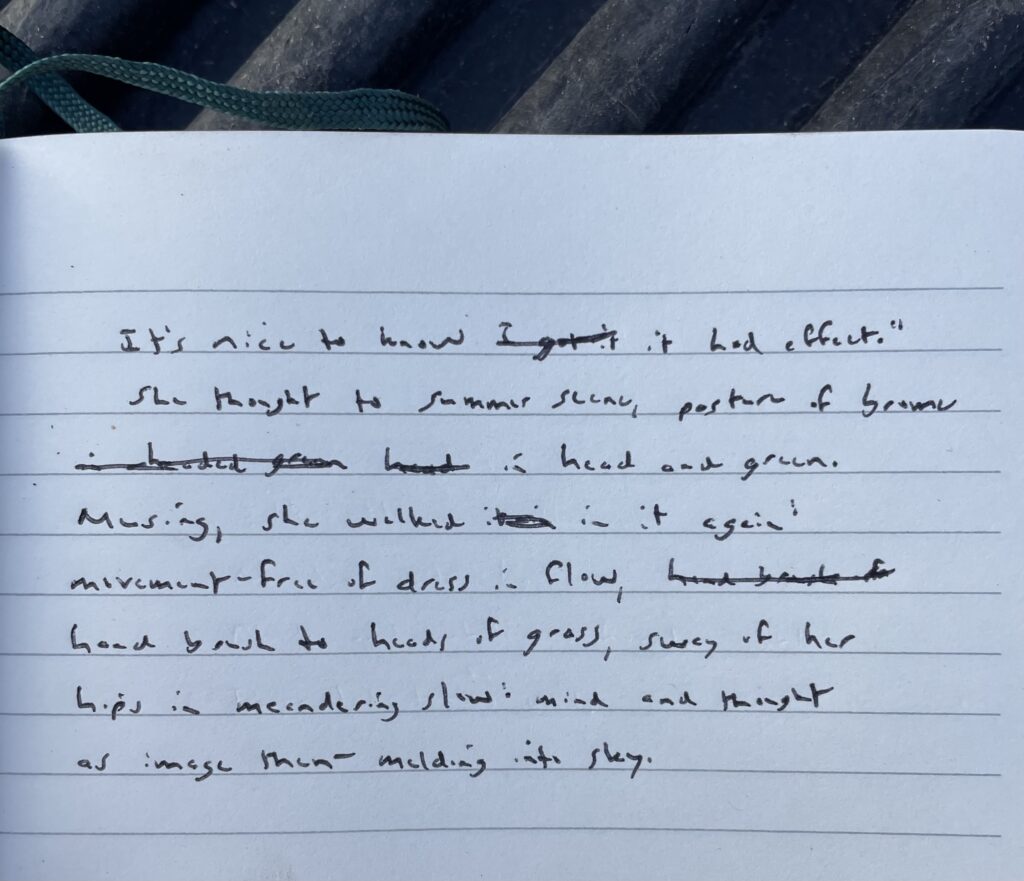 It's nice to know I got it it had effect."
She thought to summer scene, posture of brown
in headed green head in head and green.
Musing, she walked in it again:
movement-free of dress in flow, hand brush
hand brush to heads of grass, sway of her
hips in meandering slow: mind and thought
as image then— melding into sky.